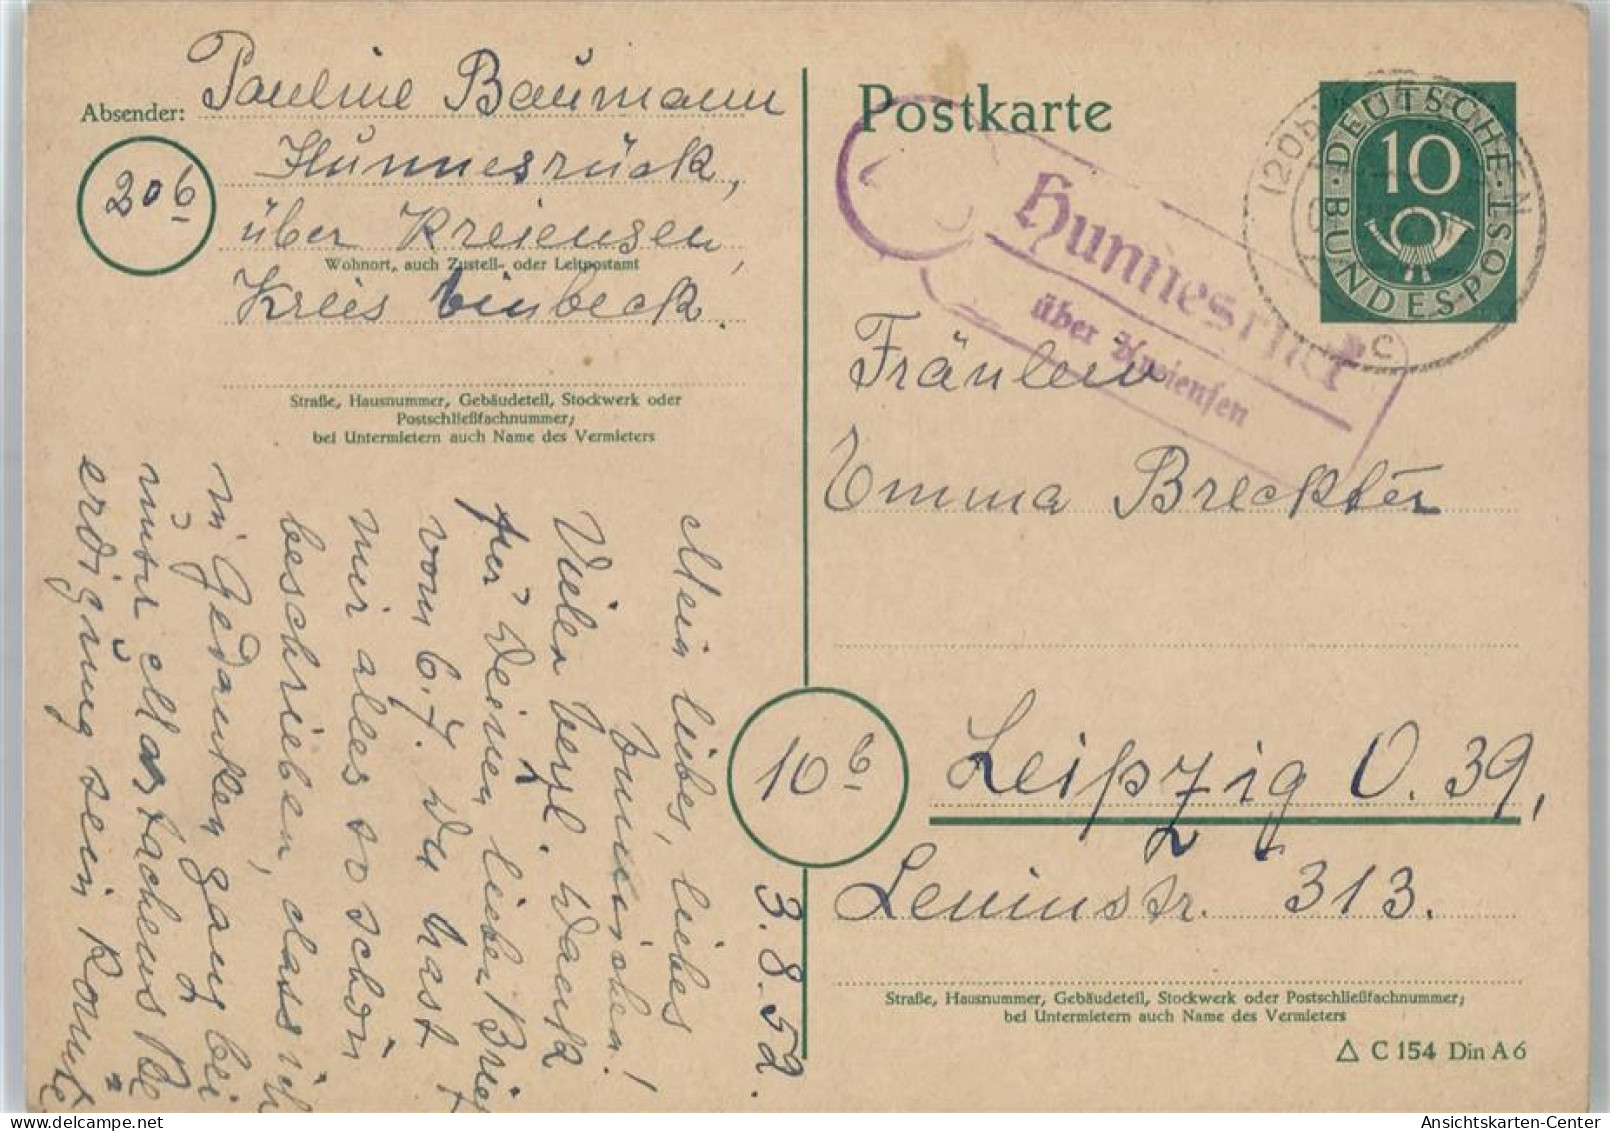 Absender: Pauline Baumann
20b
Hunnesrück,
über Kreiensen,
Wohnort, auch Zustell- oder Leitpostamt
Kreis Einbeck.
Straße, Hausnummer, Gebäudeteil, Stockwerk oder
Postschließfachnummer;
bei Untermietern auch Name des Vermieters
Postkarte
DEUTSCHE BUNDESPOST
10
(20b)
c
Hunnesrück
über Kreiensen
Fräulein
Emma
10b
Leipzig O. 39,
Leninstr. 313.
Straße, Hausnummer, Gebäudeteil, Stockwerk oder Postschließfachnummer;
bei Untermietern auch Name des Vermieters
△ C 154 Din A 6
3.8.52.
Mein liebes, liebes
Vielen herzl. Dank
für Deinen lieben Brief
vom 6.7. Du hast
mir alles so schön
beschrieben, dass ich
in Gedanken ganz bei
erdigung sein konnte
Ansichtskarten-Center